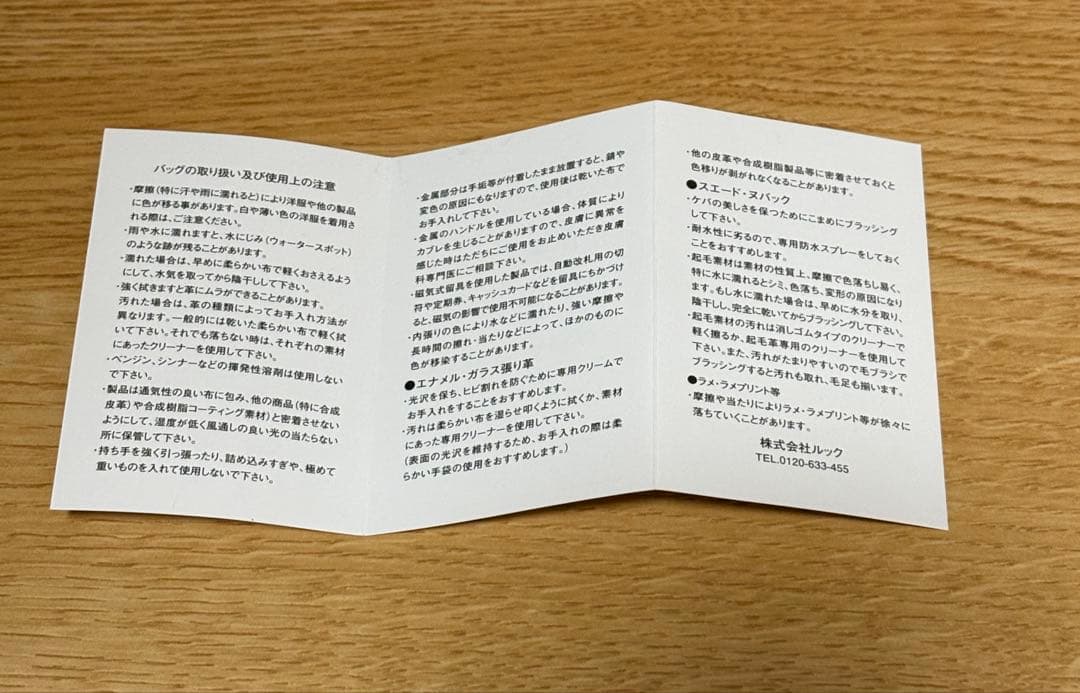 バッグの取り扱い及び使用上の注意
・摩擦(特に汗や雨に濡れると)により洋服や他の製品
に色が移る事があります。白や薄い色の洋服を着用さ
れる際は、ご注意ください。
・雨や水に濡れますと、水にじみ(ウォータースポット)
のような跡が残ることがあります。
・濡れた場合は、早めに柔らかい布で軽くおさえるよう
にして、水気を取ってから陰干しして下さい。
・強く拭きますと革にムラができることがあります。
汚れた場合は、革の種類によってお手入れ方法が
異なります。一般的には乾いた柔らかい布で軽く拭
いて下さい。それでも落ちない時は、それぞれの素材
にあったクリーナーを使用して下さい。
・ベンジン、シンナーなどの揮発性溶剤は使用しない
で下さい。
・製品は通気性の良い布に包み、他の商品(特に合成
皮革)や合成樹脂コーティング素材)と密着させない
ようにして、湿度が低く風通しの良い光の当たらない
所に保管して下さい。
・持ち手を強く引っ張ったり、詰め込みすぎや、極めて
重いものを入れて使用しないで下さい。
・金属部分は手垢等が付着したまま放置すると、錆や
変色の原因にもなりますので、使用後は乾いた布で
お手入れして下さい。
・金属のハンドルを使用している場合、体質により
カブレを生じることがありますので、皮膚に異常を
感じた時はただちにご使用をお止めいただき皮膚
科専門医にご相談下さい。
・磁気式留具を使用した製品では、自動改札用の切
符や定期券、キャッシュカードなどを留具にちかづけ
ると、磁気の影響で使用不可能になることがあります。
・内張りの色により水などに濡れたり、強い摩擦や
長時間の擦れ・当たりなどによって、ほかのものに
色が移染することがあります。
●エナメル・ガラス張り革
・光沢を保ち、ヒビ割れを防ぐために専用クリームで
お手入れをすることをおすすめします。
・汚れは柔らかい布を湿らせ叩くように拭くか、素材
にあった専用クリーナーを使用して下さい。
(表面の光沢を維持するため、お手入れの際は柔
らかい手袋の使用をおすすめします。)
・他の皮革や合成樹脂製品等に密着させておくと
色移りが剥がれなくなることがあります。
●スエード・ヌバック
・ケバの美しさを保つためにこまめにブラッシング
して下さい。
・耐水性に劣るので、専用防水スプレーをしておく
ことをおすすめします。
・起毛素材は素材の性質上、摩擦で色落ちし易く、
特に水に濡れるとシミ、色落ち、変形の原因になり
ます。もし水に濡れた場合は、早めに水分を取り、
陰干しし、完全に乾いてからブラッシングして下さい。
・起毛素材の汚れは消しゴムタイプのクリーナーで
軽く擦るか、起毛革専用のクリーナーを使用して
下さい。また、汚れがたまりやすいので毛ブラシで
ブラッシングすると汚れも取れ、毛足も揃います。
●ラメ・ラメプリント等
・摩擦や当たりによりラメ・ラメプリント等が徐々に
落ちていくことがあります。
株式会社ルック
TEL.0120-633-455